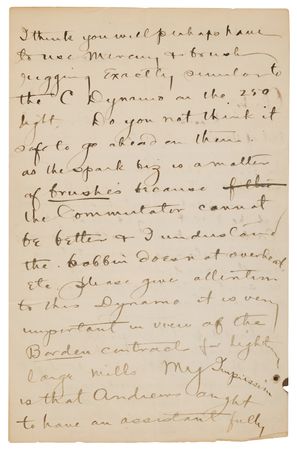 I think you will perhaps have
to use Mercury & brush
rigging Exactly similar to
the "C" Dynamo on the 250
light Do you not think it
safe to go ahead on them.
as the spark biz is a matter
of brushes because
the Commutator cannot
be better & I understand
the bobbin doesnt overheat
Etc please give attention
to this Dynamo it is very
important in view of the
Borden contract for lighting
large mills My Impression
is that Andrews ought
to have an assistant fully